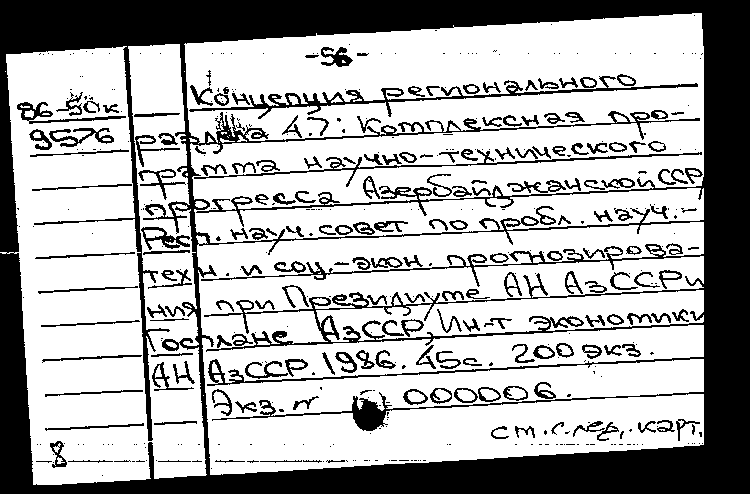 -56-
86-50к
9576
Концепция регионального
раздела 4.7: Комплексная про-
грамма научно-технического
прогресса Азербайджанской ССР/
Респ. науч. совет по пробл. науч.-
техн. и соц.-экон. прогнозирова-
ния при Президиуме АН АзССР и
Госплане АзССР, Ин-т экономики
АН АзССР. 1986. 45с. 200 экз.
Экз. № 000006.
см. след. карт.
8